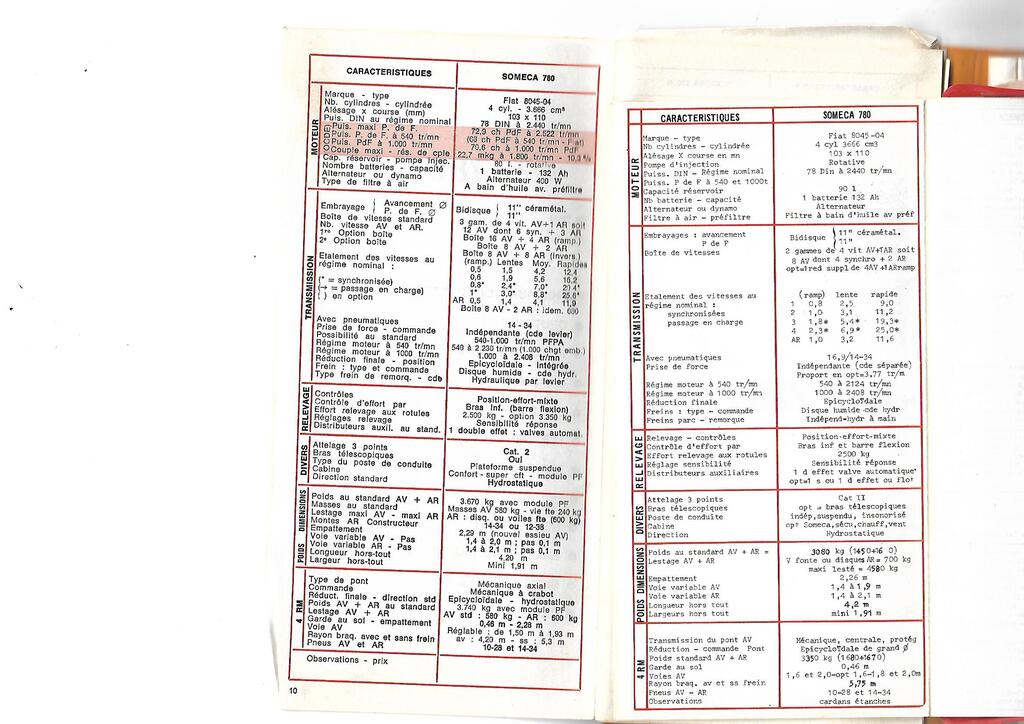 CARACTERISTIQUES SOMECA 780
MOTEUR
Marque - type Fiat 8045-04
Nb. cylindres - cylindrée 4 cyl. - 3.666 cm³
Alésage x course (mm) 103 x 110
Puis. DIN au régime nominal 78 DIN à 2.440 tr/mn
Puis. maxi P. de F. 72,9 ch PdF à 2.522 tr/mn
Puis. P. de F. à 540 tr/mn (68 ch PdF à 540 tr/mn - Fiat)
Puis. PdF à 1.000 tr/mn 70,6 ch à 1.000 tr/mn PdF
Couple maxi - rés. de cple 22,7 mkg à 1.806 tr/mn - 10,3 %
Cap. réservoir - pompe injec. 80 l. - rotative
Nombre batteries - capacité 1 batterie - 132 Ah
Alternateur ou dynamo Alternateur 400 W
Type de filtre à air A bain d'huile av. préfiltre
TRANSMISSION
Embrayage { Avancement ∅ Bidisque { 11'' cérametal.
P. de F. ∅ 11''
Boîte de vitesse standard 3 gam. de 4 vit. AV+1 AR soit
Nb. vitesse AV et AR. 12 AV dont 6 syn. + 3 AR
1re Option boîte Boîte 16 AV + 4 AR (ramp.)
2e Option boîte Boîte 8 AV + 2 AR
Boîte 8 AV + 8 AR (Invers.)
Etalement des vitesses au (ramp.) Lentes Moy. Rapides
régime nominal : 0,5 1,5 4,2 12,4
0,6 1,9 5,6 16,2
(* = synchronisée) 0,8* 2,4* 7,0* 20,4*
(→ = passage en charge) 1* 3,0* 8,8* 25,6*
( ) en option AR 0,5 1,4 4,1 11,9
Boîte 8 AV - 2 AR : idem. 680
Avec pneumatiques 14 - 34
Prise de force - commande Indépendante (cde levier)
Possibilité au standard 540-1.000 tr/mn PFPA
Régime moteur à 540 tr/mn 540 à 2 230 tr/mn (1.000 chgt emb.)
Régime moteur à 1000 tr/mn 1.000 à 2.408 tr/mn
Réduction finale - position Epicycloïdale - Intégrée
Frein : type et commande Disque humide - cde hydr.
Type frein de remorq. - cde Hydraulique par levier
RELEVAGE
Contrôles Position-effort-mixte
Contrôle d'effort par Bras inf. (barre flexion)
Effort relevage aux rotules 2.500 kg - option 3.350 kg
Réglages relevage Sensibilité réponse
Distributeurs auxil. au stand. 1 double effet : valves automat.
DIVERS
Attelage 3 points Cat. 2
Bras télescopiques Oui
Type du poste de conduite Plateforme suspendue
Cabine Confort - super cft - module PF
Direction standard Hydrostatique
POIDS DIMENSIONS
Poids au standard AV + AR 3.670 kg avec module PF
Masses au standard Masses AV 580 kg - vie fte 240 kg
Lestage maxi AV - maxi AR AR : disq. ou voiles fte (600 kg)
Montes AR Constructeur 14-34 ou 12-38
Empattement 2,29 m (nouvel essieu AV)
Voie variable AV - Pas 1,4 à 2,0 m ; pas 0,1 m
Voie variable AR - Pas 1,4 à 2,1 m ; pas 0,1 m
Longueur hors-tout 4,20 m
Largeur hors-tout Mini 1,91 m
4 RM
Type de pont Mécanique axial
Commande Mécanique à crabot
Réduct. finale - direction std Epicycloïdale - hydrostatique
Poids AV + AR au standard 3.740 kg avec module PF
Lestage AV + AR AV std : 580 kg - AR : 600 kg
Garde au sol - empattement 0,46 m - 2,28 m
Voie AV Réglable : de 1,50 m à 1,93 m
Rayon braq. avec et sans frein av : 4,20 m - ss : 5,3 m
Pneus AV et AR 10-28 et 14-34
Observations - prix
10
CARACTERISTIQUES SOMECA 780
MOTEUR
Marque - type Fiat 8045-04
Nb cylindres - cylindrée 4 cyl 3666 cm3
Alésage X course en mn 103 x 110
Pompe d'injection Rotative
Puiss. DIN - Régime nominal 78 Din à 2440 tr/mn
Puiss. P de F à 540 et 1000t
Capacité réservoir 90 l
Nb batterie - capacité 1 batterie 132 Ah
Alternateur ou dynamo Alternateur
Filtre à air - préfiltre Filtre à bain d'huile av préf
TRANSMISSION
Embrayages : avancement Bidisque } 11'' céramétal.
P de F 11''
Boîte de vitesses 2 gammes de 4 vit AV+1AR soit
8 AV dont 4 synchro + 2 AR
opt=1red suppl de 4AV +1ARramp
Etalement des vitesses au (ramp) lente rapide
régime nominal : 1 0,8 2,5 9,0
synchronisées 2 1,0 3,1 11,2
passage en charge 3 1,8* 5,4* 19,3*
4 2,3* 6,9* 25,0*
AR 1,0 3,2 11,6
Avec pneumatiques 16,9/14-34
Prise de force Indépendante (cde séparée)
Proport en opt=3,77 tr/m
Régime moteur à 540 tr/mn 540 à 2124 tr/mn
Régime moteur à 1000 tr/mn 1000 à 2408 tr/mn
Réduction finale Epicycloïdale
Freins : type - commande Disque humide cde hydr
Freins parc - remorque Indépend-hydr à main
RELEVAGE
Relevage - contrôles Position-effort-mixte
Contrôle d'effort par Bras inf et barre flexion
Effort relevage aux rotules 2500 kg
Réglage sensibilité Sensibilité réponse
Distributeurs auxiliaires 1 d effet valve automatique
opt=1 s ou 1 d effet ou flot
DIVERS
Attelage 3 points Cat II
Bras télescopiques opt = bras télescopiques
Poste de conduite indép,suspendu, insonorisé
Cabine opt Someca,sécu,chauff,vent
Direction Hydrostatique
POIDS DIMENSIONS
Poids au standard AV + AR = 3080 kg (1450+16 0)
Lestage AV + AR V fonte ou disques AR= 700 kg
maxi lesté = 4580 kg
Empattement 2,26 m
Voie variable AV 1,4 à 1,9 m
Voie variable AR 1,4 à 2,1 m
Longueur hors tout 4,2 m
Largeurs hors tout mini 1,91 m
4 RM
Transmission du pont AV Mécanique, centrale, protég
Réduction - commande Pont Epicycloïdale de grand ∅
Poids standard AV + AR 3350 kg (1680+1670)
Garde au sol 0,46 m
Voies AV 1,6 et 2,0-opt 1,6-1,8 et 2,0m
Rayon braq. av et ss frein 5,75 m
Pneus AV - AR 10-28 et 14-34
Observations cardans étanches